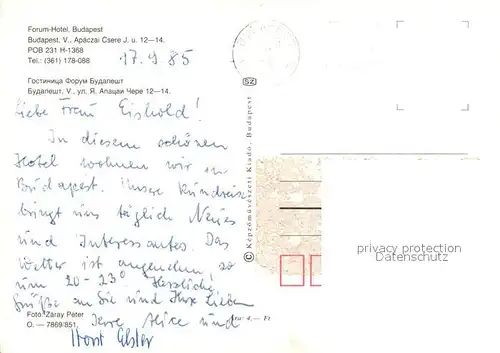 Forum-Hotel, Budapest
Budapest, V., Apáczai Csere J. u. 12—14.
POB 231 H-1368
Tel.: (361) 178-088
17.9.85
Гостиница Форум Будапешт
Будапешт, V., ул. Я. Апацаи Чере 12—14.
Liebe Frau Eishold!
In diesem schönen
Hotel wohnen wir in
Budapest. Unsere Rundreise
bringt uns täglich Neues
und Interessantes. Das
Wetter ist angenehm, so
um 20 - 23° Herzliche
Grüße an Sie und Ihre Lieben
Ihre Alice und
Horst Elster
Fotó: Záray Péter
O. — 7869/851
Ára: 4,— Ft
SZ
© Képzőművészeti Kiadó, Budapest
privacy protection
Datenschutz